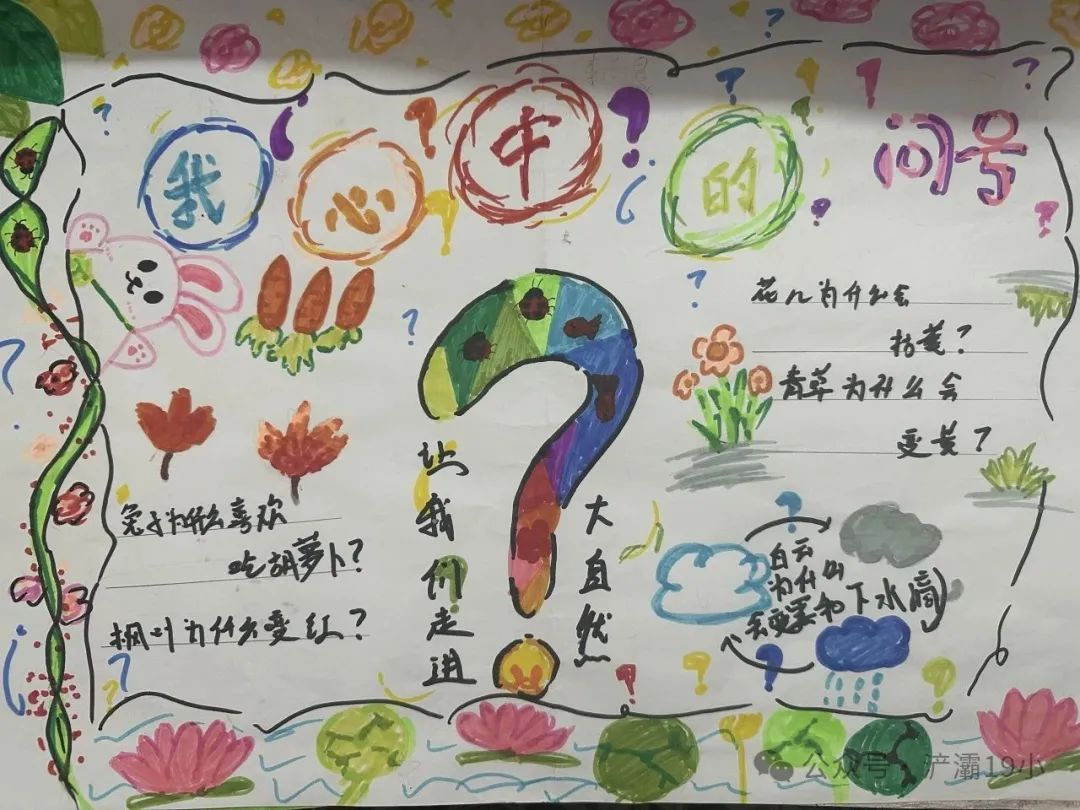 我心中的问号
花儿为什么会
枯黄？
青草为什么会
变黄？
让我们走进
大自然
兔子为什么喜欢
吃胡萝卜？
枫叶为什么变红？
白云
为什么
会变黑和下水滴
公众号 浐灞19小